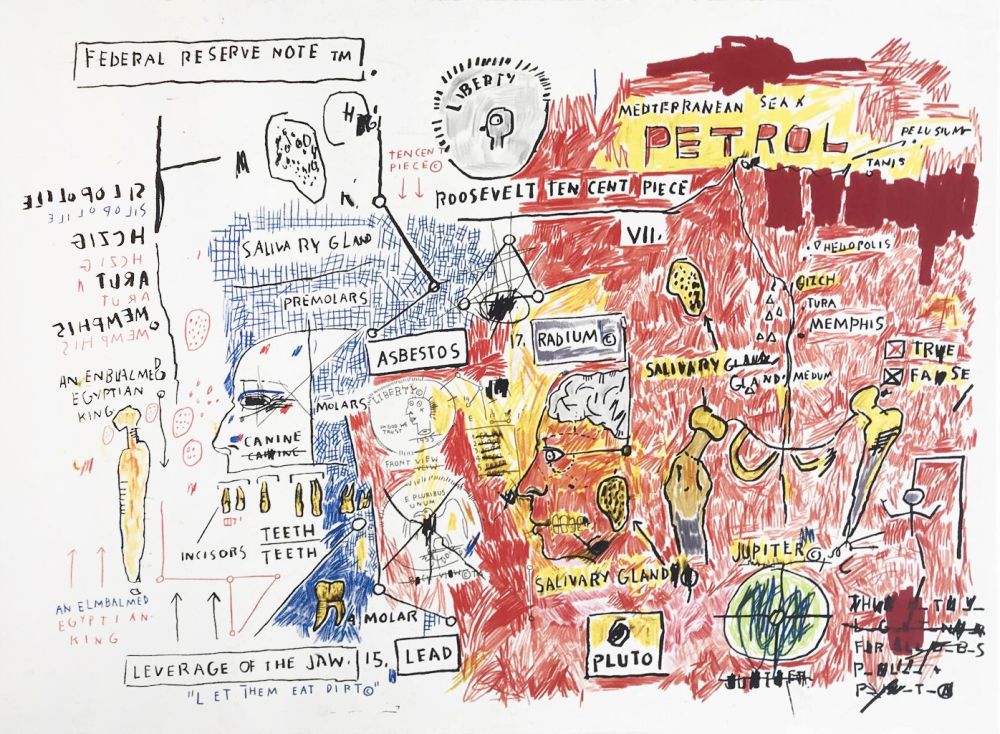 FEDERAL RESERVE NOTE TM.
LIBERTY
MEDTERRANEAN SEA
PETROL
PELUSIUM
TANIS
TEN CENT
PIECE©
ROOSEVELT TEN CENT PIECE
VII.
M
H
SILOPOLILE
SILOPOLILE
HCZIG
HCZIG
ARUT
ARUT
MEMPHIS
MEMPHIS
SALIVARY GLAND
PREMOLARS
ASBESTOS
17.
RADIUM©
HELIOPOLIS
GIZCH
TURA
MEMPHIS
MEDUM
TRUE
FALSE
SALIVARY GLAND
GLAND
AN ENBUALMED
EGYPTIAN
KING
MOLARS
LIBERTY©
IN GOD WE
TRUST
1955
FRONT VIEW
VIEW
CANINE
CANINE
E PLURIBUS
UNUM
INCISORS
TEETH
TEETH
SALIVARY GLAND
JUPITER©
AN ELMBALMED
EGYPTIAN-
KING
4 MOLAR
LEVERAGE OF THE JAW.
15.
LEAD
PLUTO
"LET THEM EAT DIRT©"
JUPITER